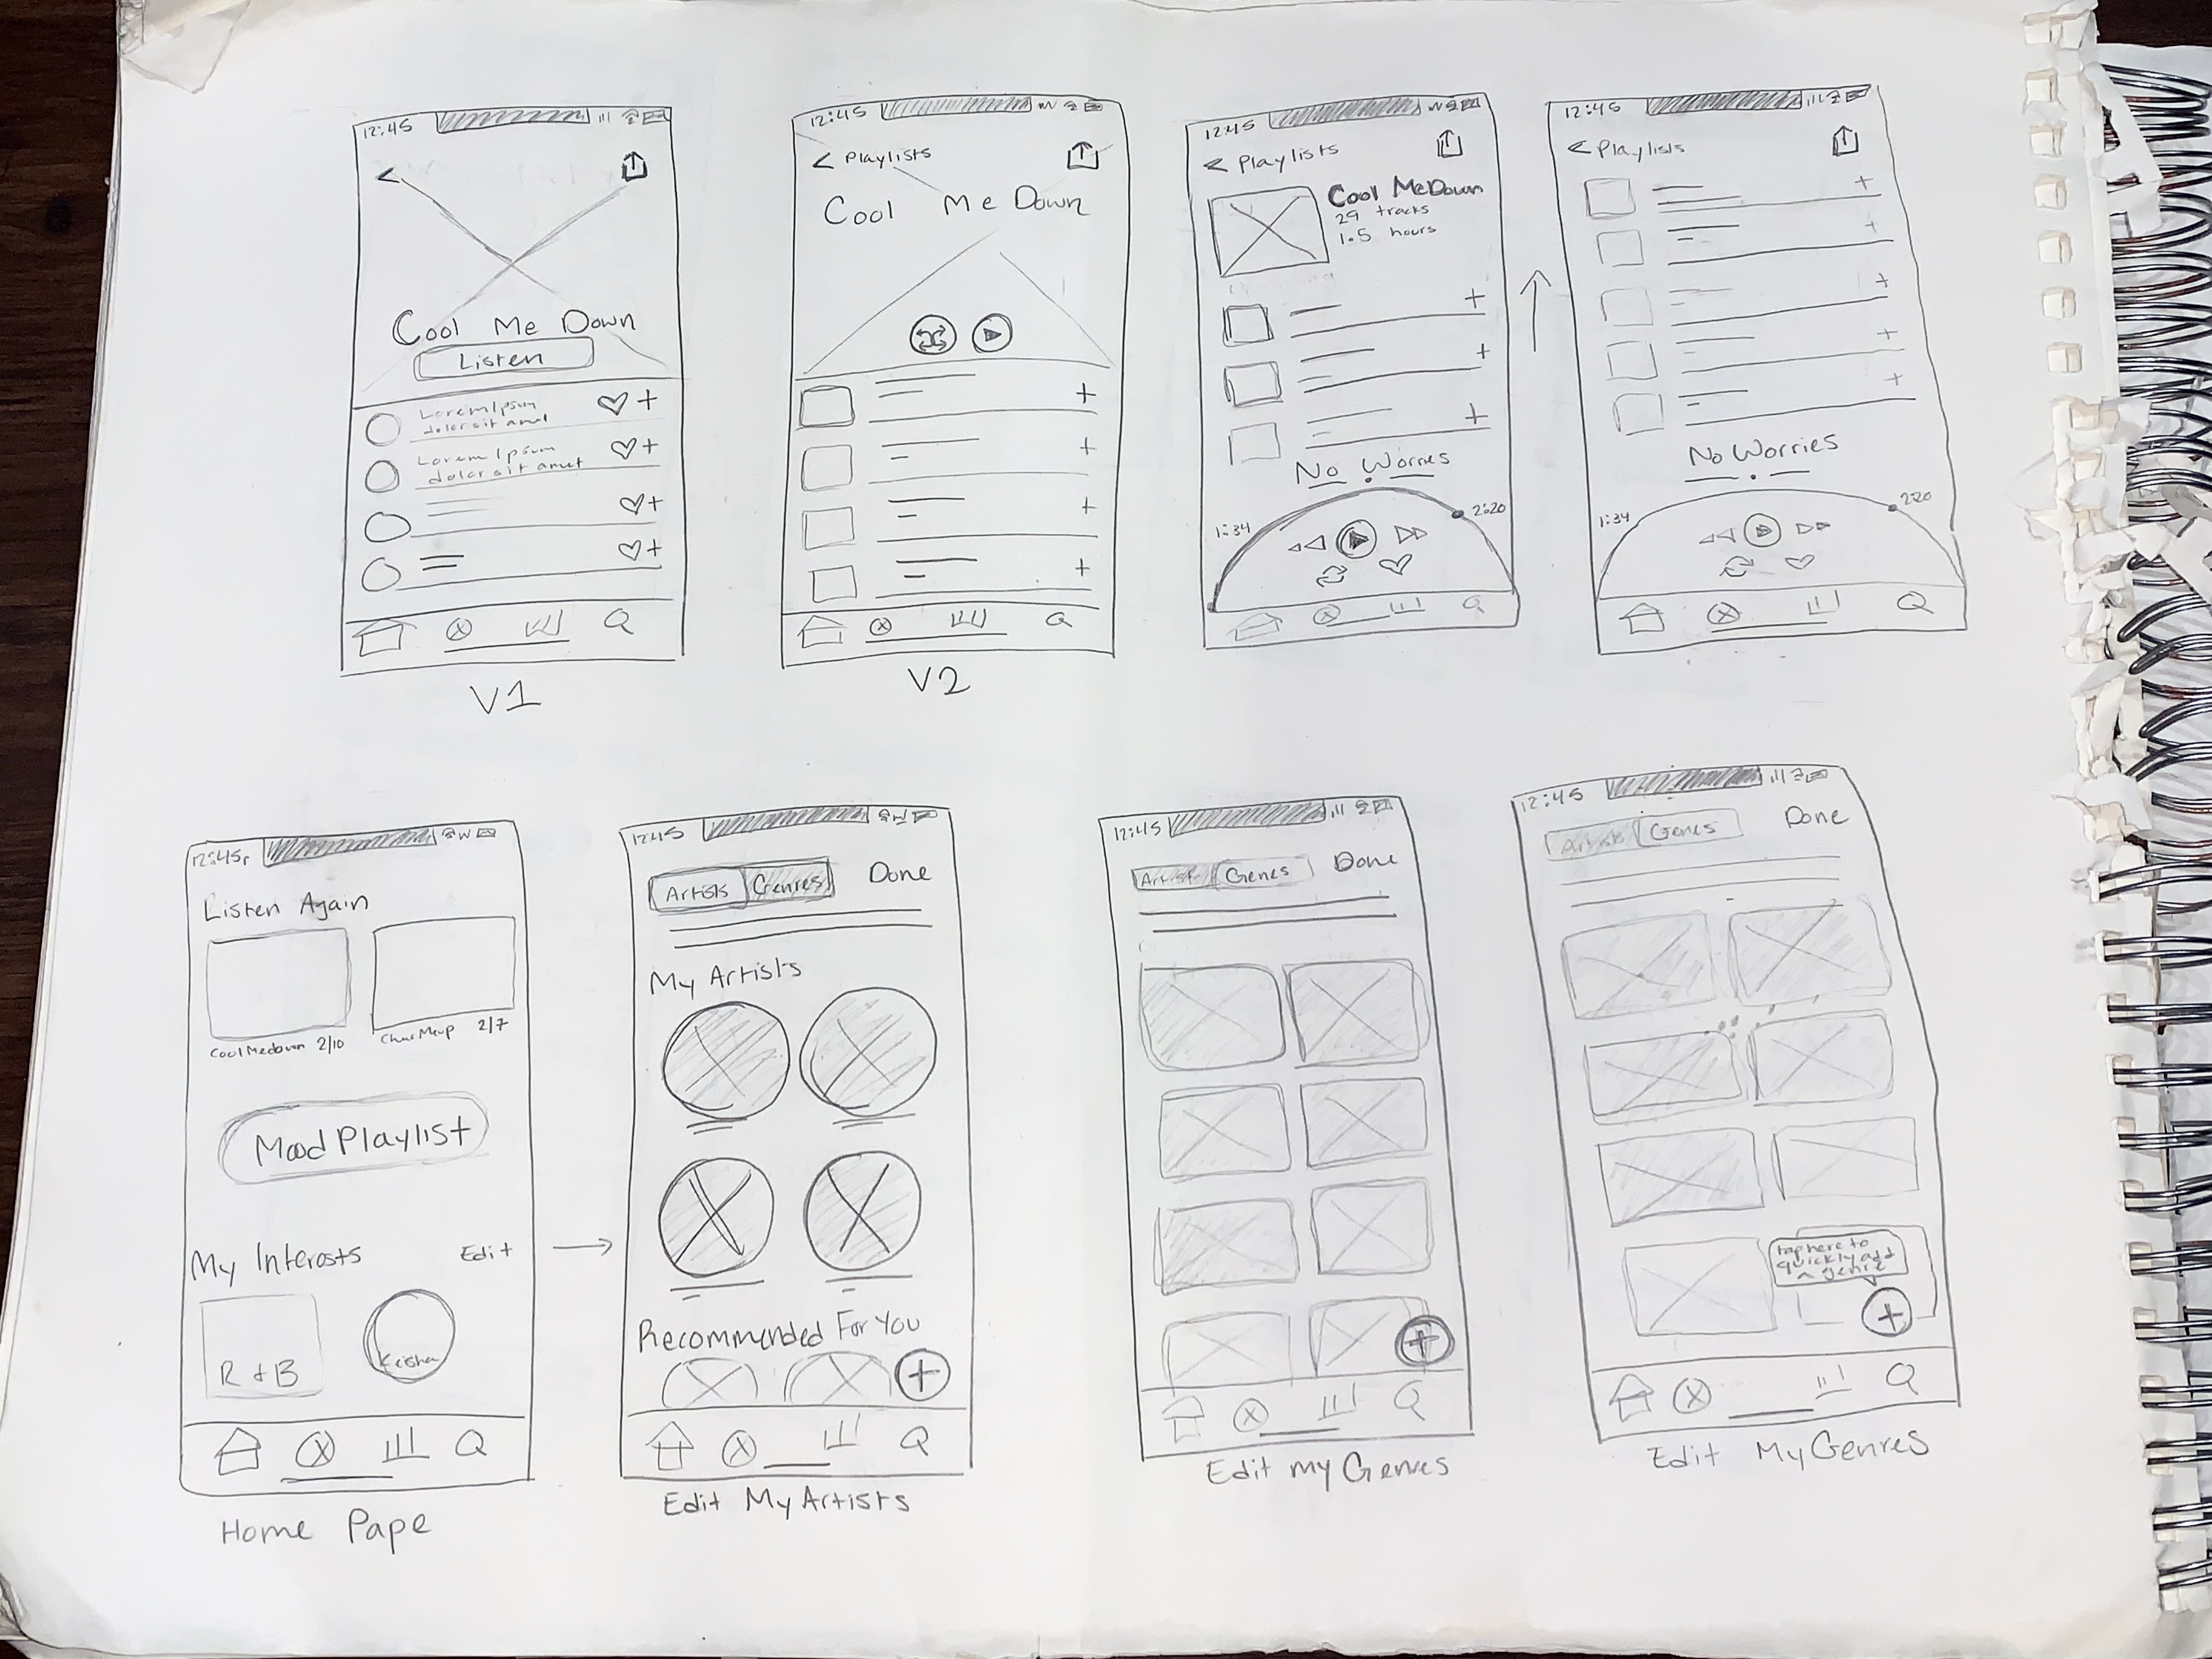 12:45
<
Cool Me Down
Listen
Lorem Ipsum
dolor sit amet
Lorem Ipsum
dolor sit amet
V1
12:45
< Playlists
Cool Me Down
V2
12:45
< Playlists
Cool Me Down
29 tracks
1.5 hours
No Worries
1:34
2:20
12:45
< Playlists
No Worries
1:34
2:20
12:45
Listen Again
Cool Me down 2/10
2/7
Mood Playlist
My Interests Edit
R & B
Keisha
Home Page
12:45
Artists Genres Done
My Artists
Recommended For You
Edit My Artists
12:45
Artist Genes Done
Edit my Genres
12:45
Artists Genes Done
tap here to
quickly add
a genre
Edit My Genres